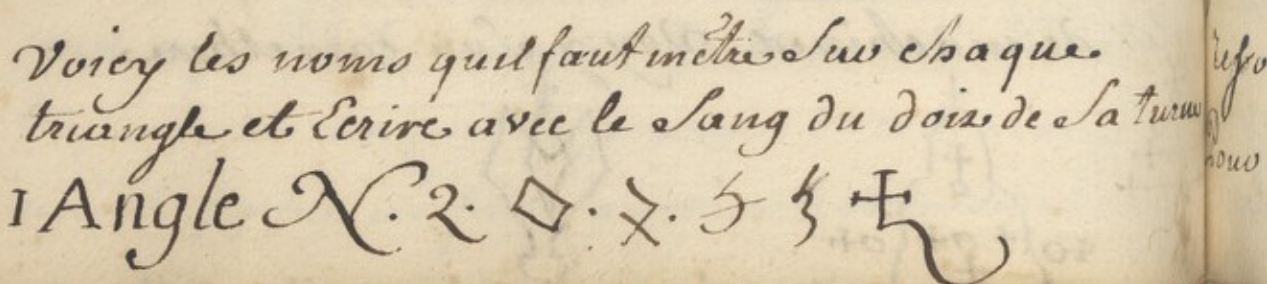 Voicy les noms quil faut metre Sur chaque
triangle et Ecrire avec le Sang du doix de Saturne
1 Angle N. 2.